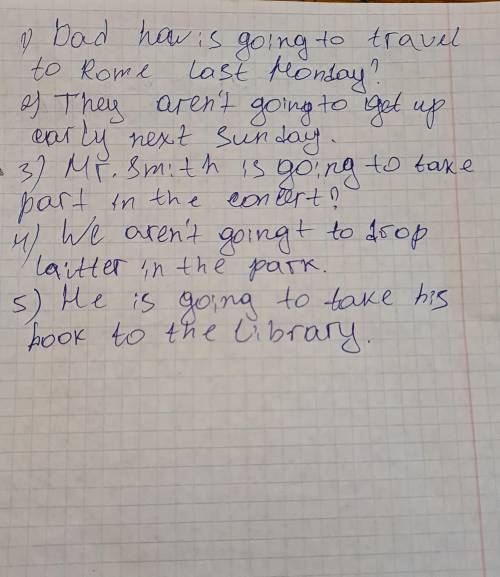 1) Dad how is going to travel
to Rome last Monday?
2) They aren't going to get up
early next Sunday.
3) Mr. Smith is going to take
part in the concert?
4) We aren't goingt to drop
laitter in the park.
5) He is going to take his
book to the library.